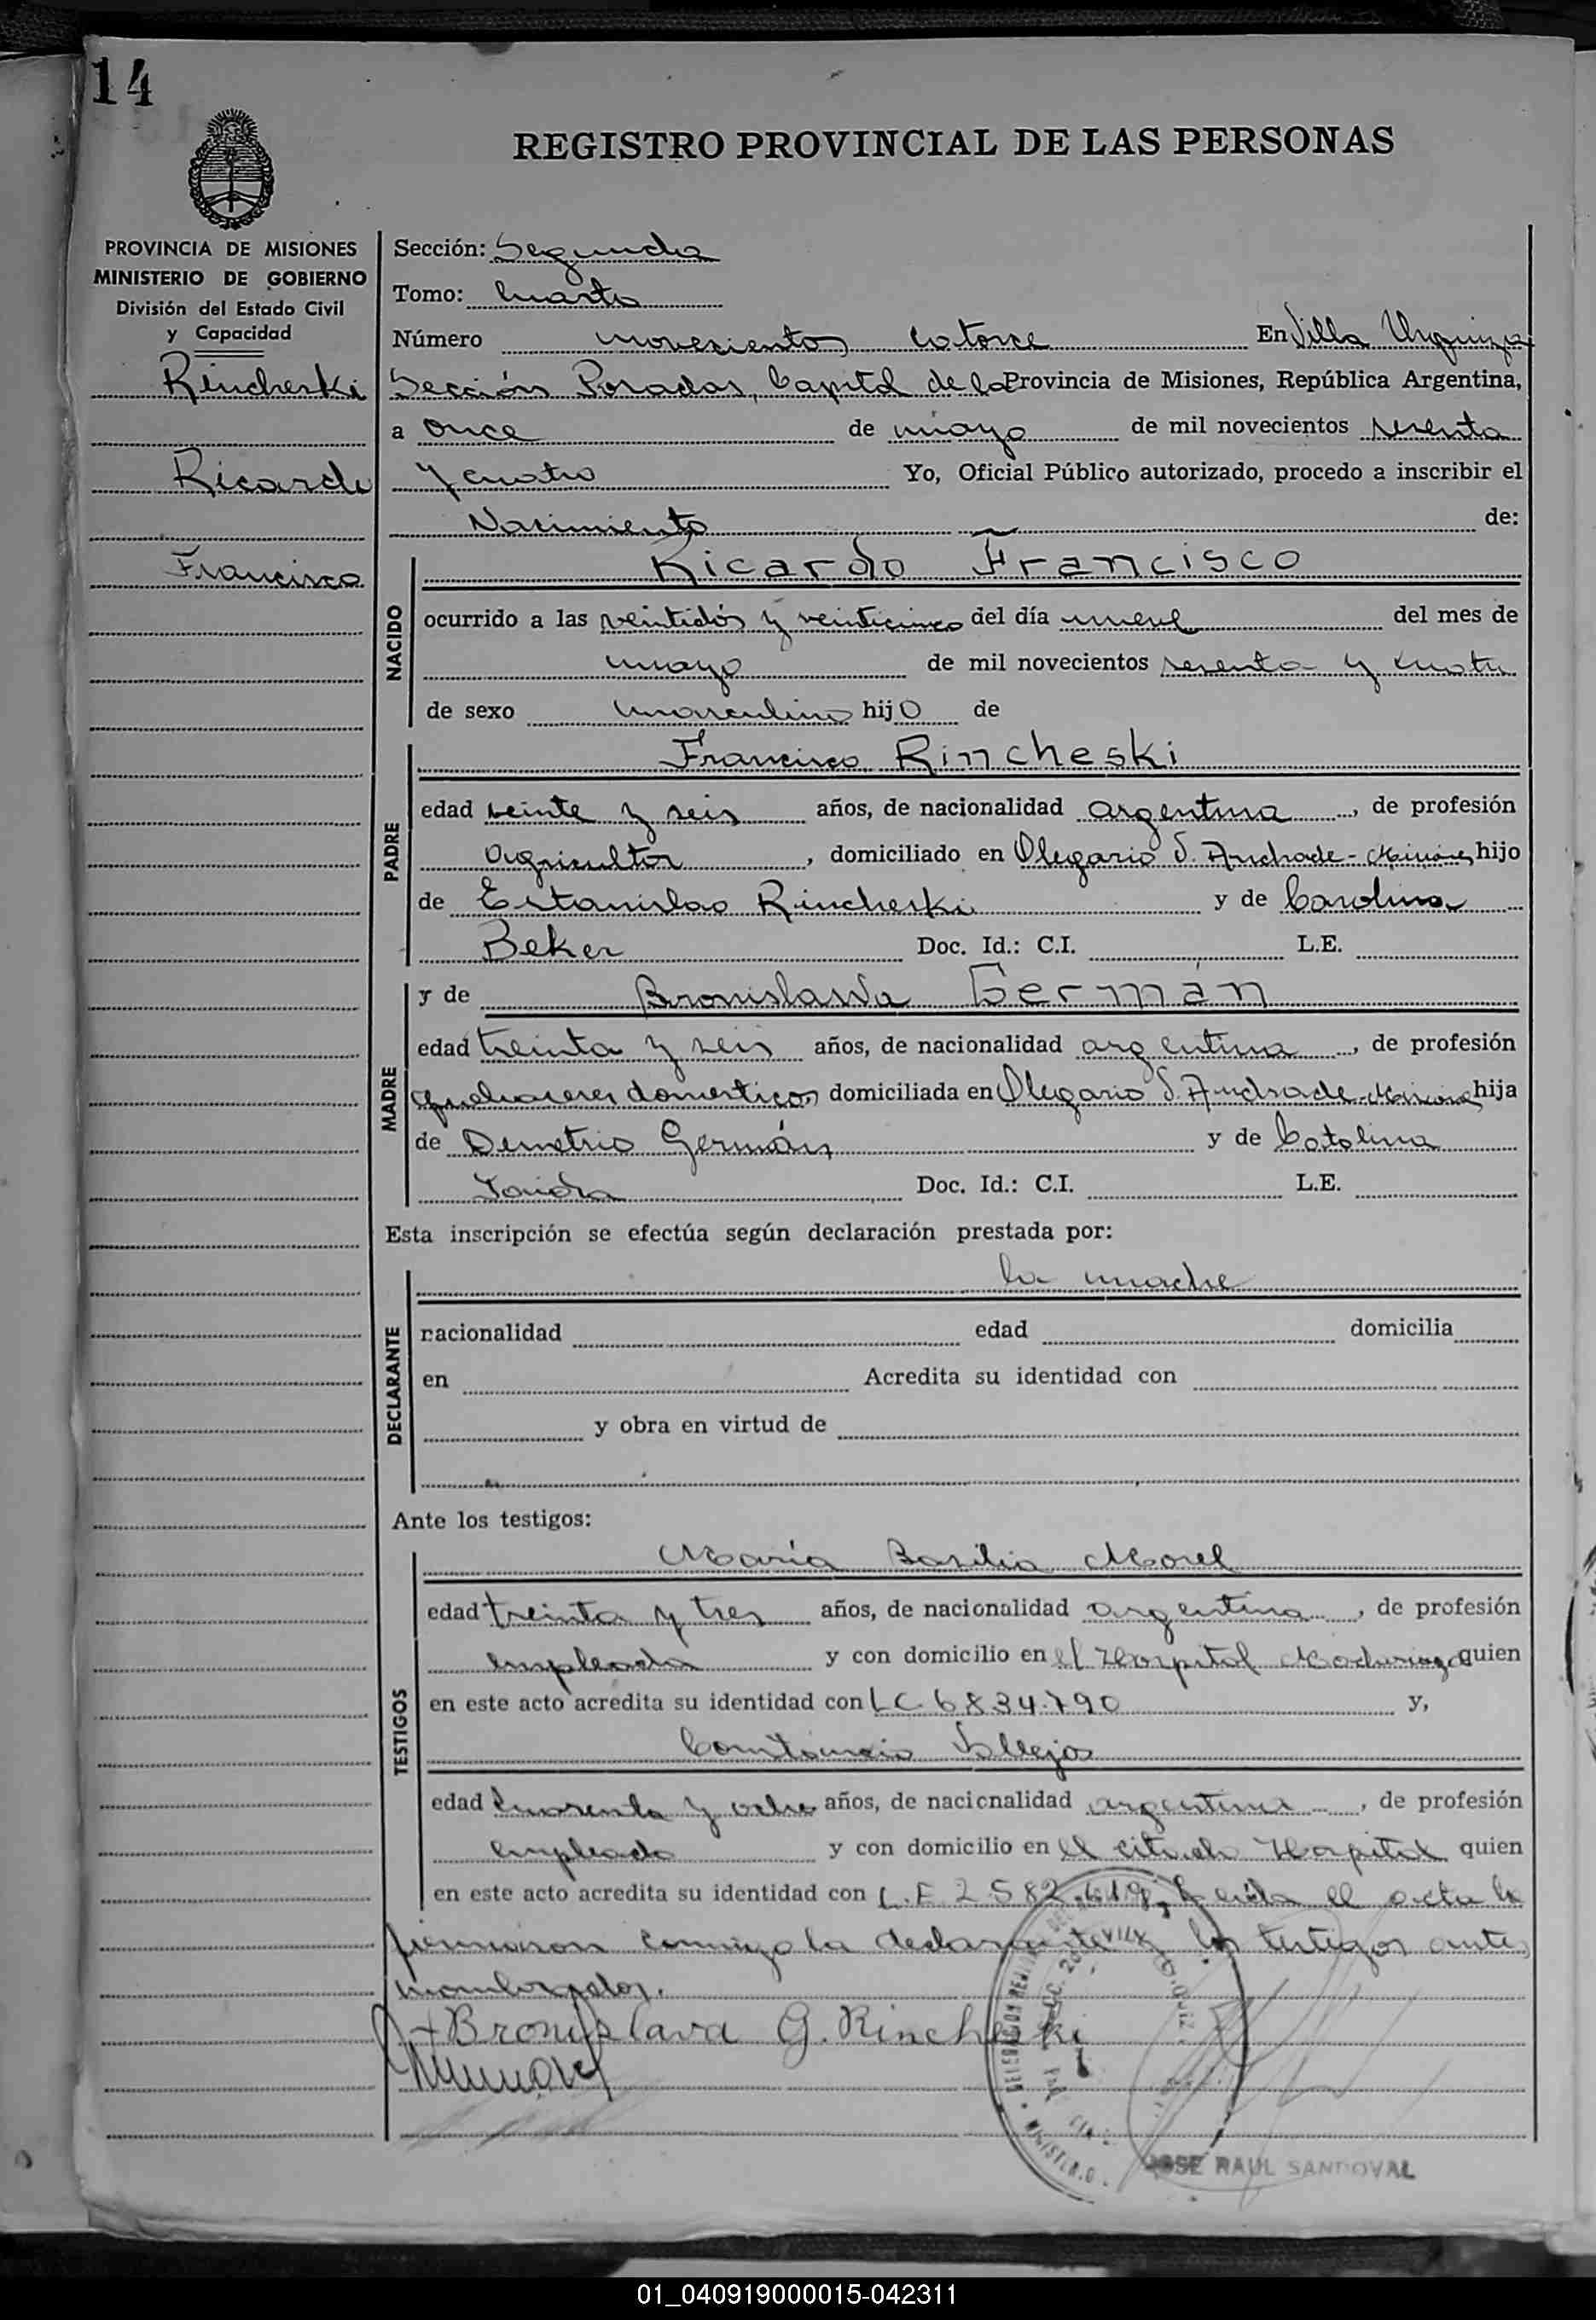 14
REGISTRO PROVINCIAL DE LAS PERSONAS
PROVINCIA DE MISIONES
MINISTERIO DE GOBIERNO
División del Estado Civil
y Capacidad
Rincheski
Ricardo
Francisco
Sección: Segunda
Tomo: Cuarto
Número novecientos catorce En Villa Urquiza
Sección Posadas, Capital de la Provincia de Misiones, República Argentina,
a once de mayo de mil novecientos sesenta
y cuatro Yo, Oficial Público autorizado, procedo a inscribir el
Nacimiento de:
NACIDO
Ricardo Francisco
ocurrido a las veintidós y veinticinco del día nueve del mes de
mayo de mil novecientos sesenta y cuatro
de sexo masculino hijo de
PADRE
Francisco Rincheski
edad veinte y seis años, de nacionalidad argentina, de profesión
agricultor, domiciliado en Olegario V. Andrade - Misiones hijo
de Estanislao Rincheski y de Carolina
Beker Doc. Id.: C.I. L.E.
MADRE
y de Bronislawa Germán
edad treinta y seis años, de nacionalidad argentina, de profesión
quehaceres domesticos domiciliada en Olegario V. Andrade - Misiones hija
de Demetrio Germán y de Catalina
Doc. Id.: C.I. L.E.
Esta inscripción se efectúa según declaración prestada por:
DECLARANTE
la madre
nacionalidad edad domicilia
en Acredita su identidad con
y obra en virtud de
Ante los testigos:
TESTIGOS
María Basilia Morel
edad treinta y tres años, de nacionalidad argentina, de profesión
empleada y con domicilio en el Hospital Madariaga quien
en este acto acredita su identidad con LC. 6834.790 y,
Vallejos
edad cuarenta y ocho años, de nacionalidad argentina, de profesión
empleado y con domicilio en el citado Hospital quien
en este acto acredita su identidad con L.E 2.582.619, Leída el acta la
firmaron conmigo la declarante y los testigos antes
nombrados.
Bronislava G. Rincheski
JOSE RAUL SANDOVAL
01_040919000015-042311